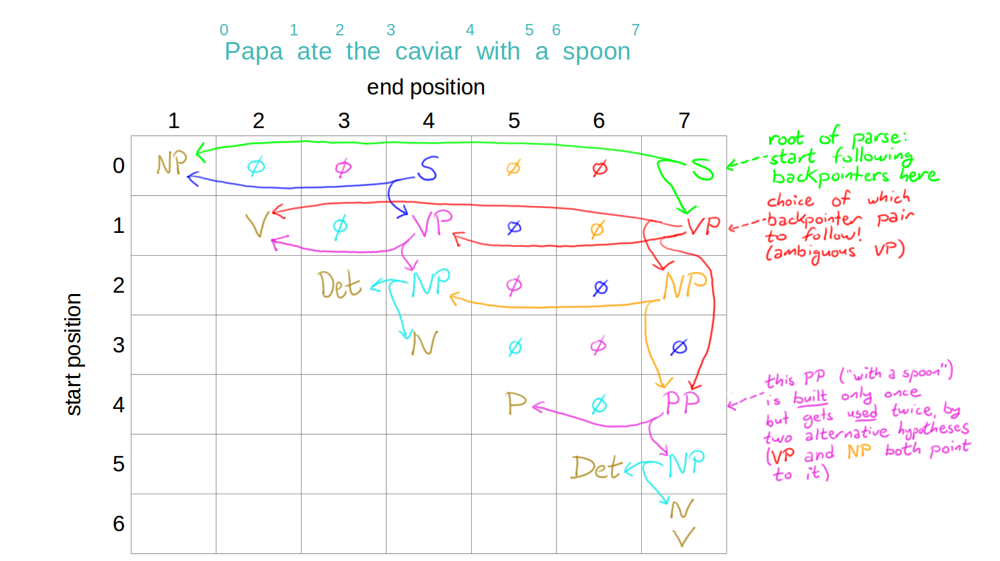 0 1 2 3 4 5 6 7
Papa ate the caviar with a spoon
end position
1 2 3 4 5 6 7
start position
0 NP ∅ ∅ S ∅ ∅ S
1 V ∅ VP ∅ ∅ VP
2 Det NP ∅ ∅ NP
3 N ∅ ∅ ∅
4 P ∅ PP
5 Det NP
6 N
V
root of parse:
start following
backpointers here
choice of which
backpointer pair
to follow!
(ambiguous VP)
this PP ("with a spoon")
is built only once
but gets used twice, by
two alternative hypotheses
(VP and NP both point
to it)